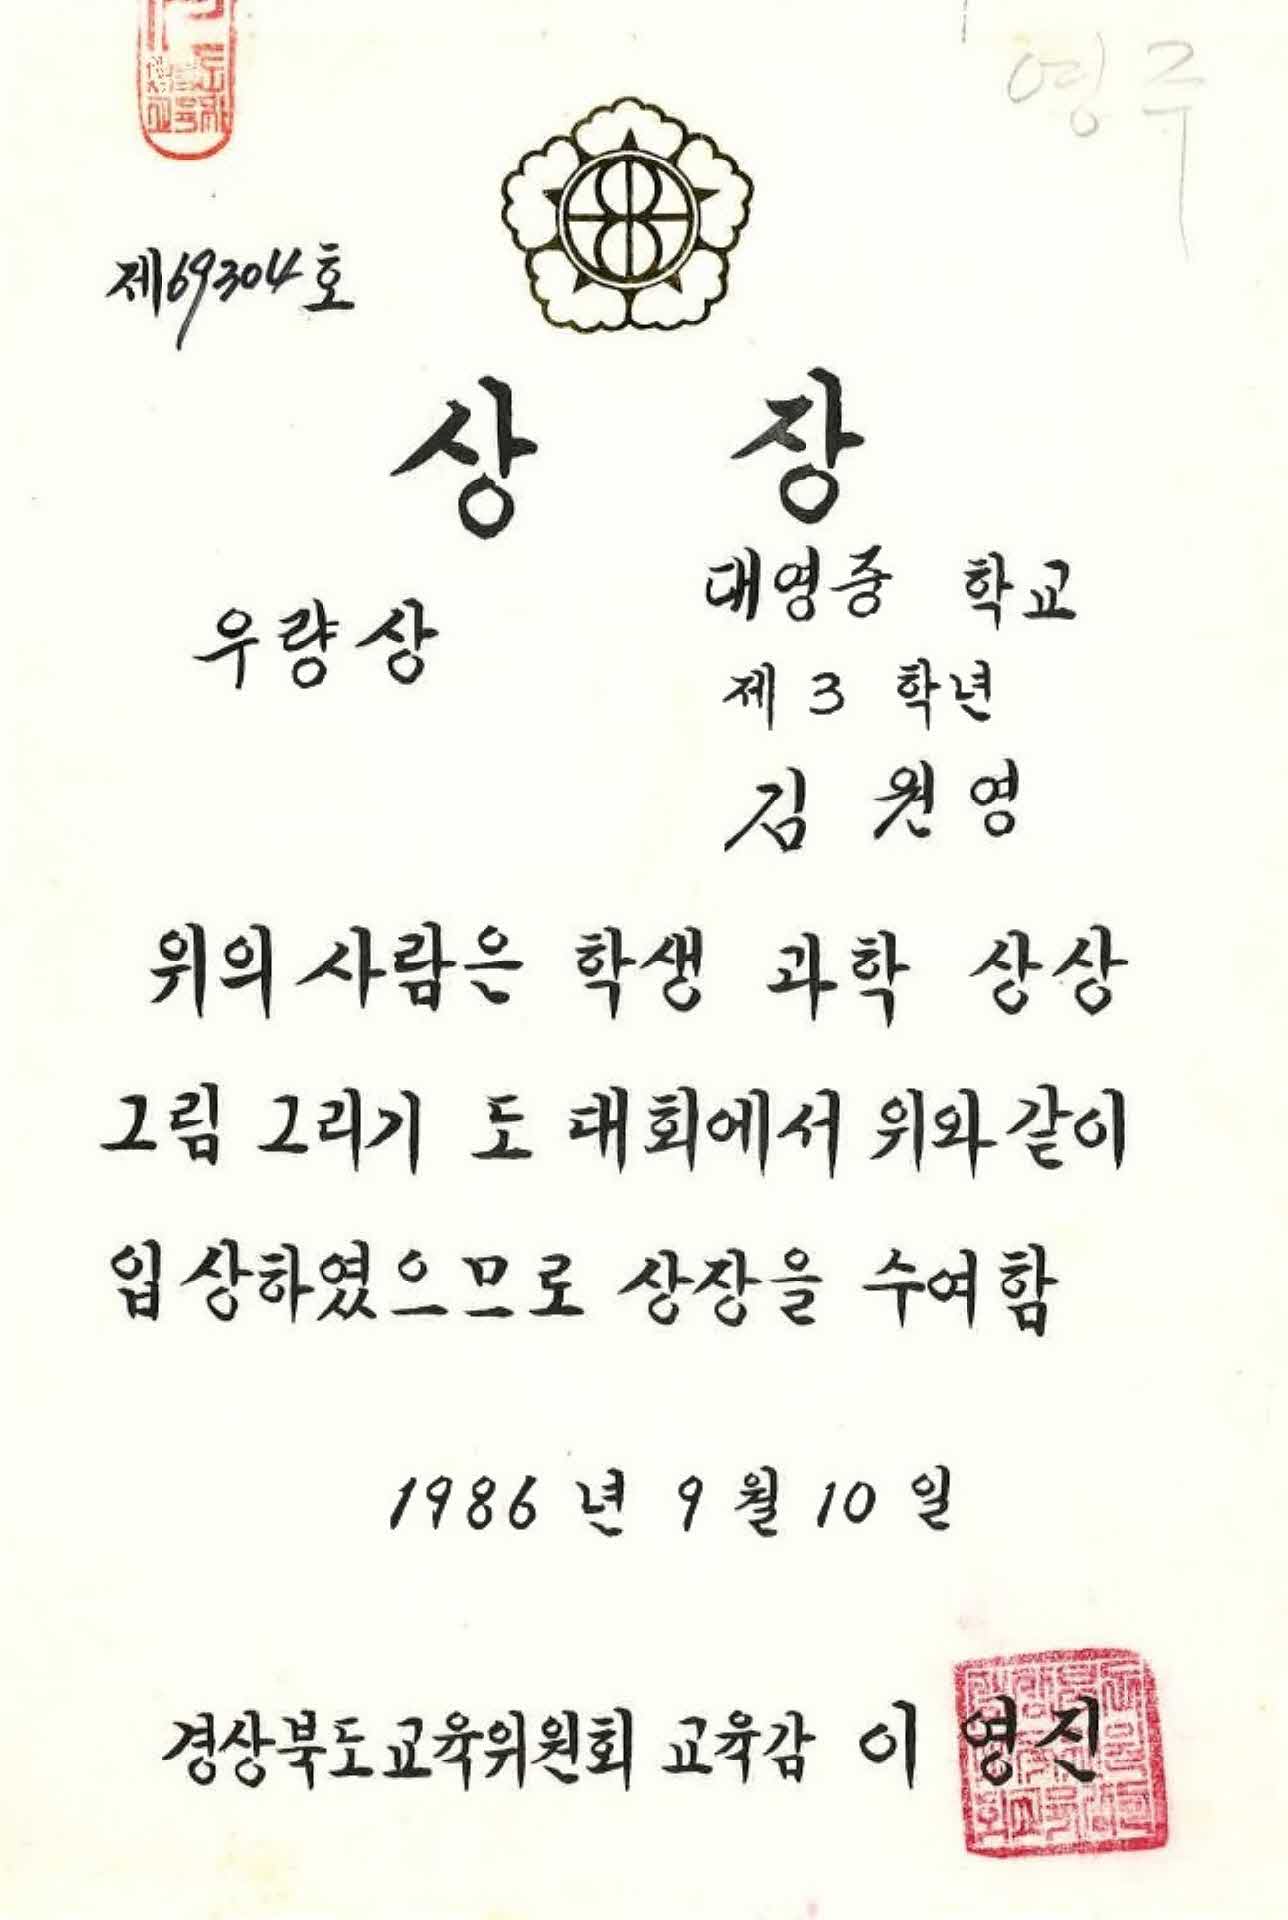 영주
제69304호
상 장
우량상
대영중 학교
제 3 학년
김 원영
위의 사람은 학생 과학 상상
그림 그리기 도 대회에서 위와 같이
입상하였으므로 상장을 수여함
1986 년 9 월 10 일
경상북도교육위원회 교육감 이 영진